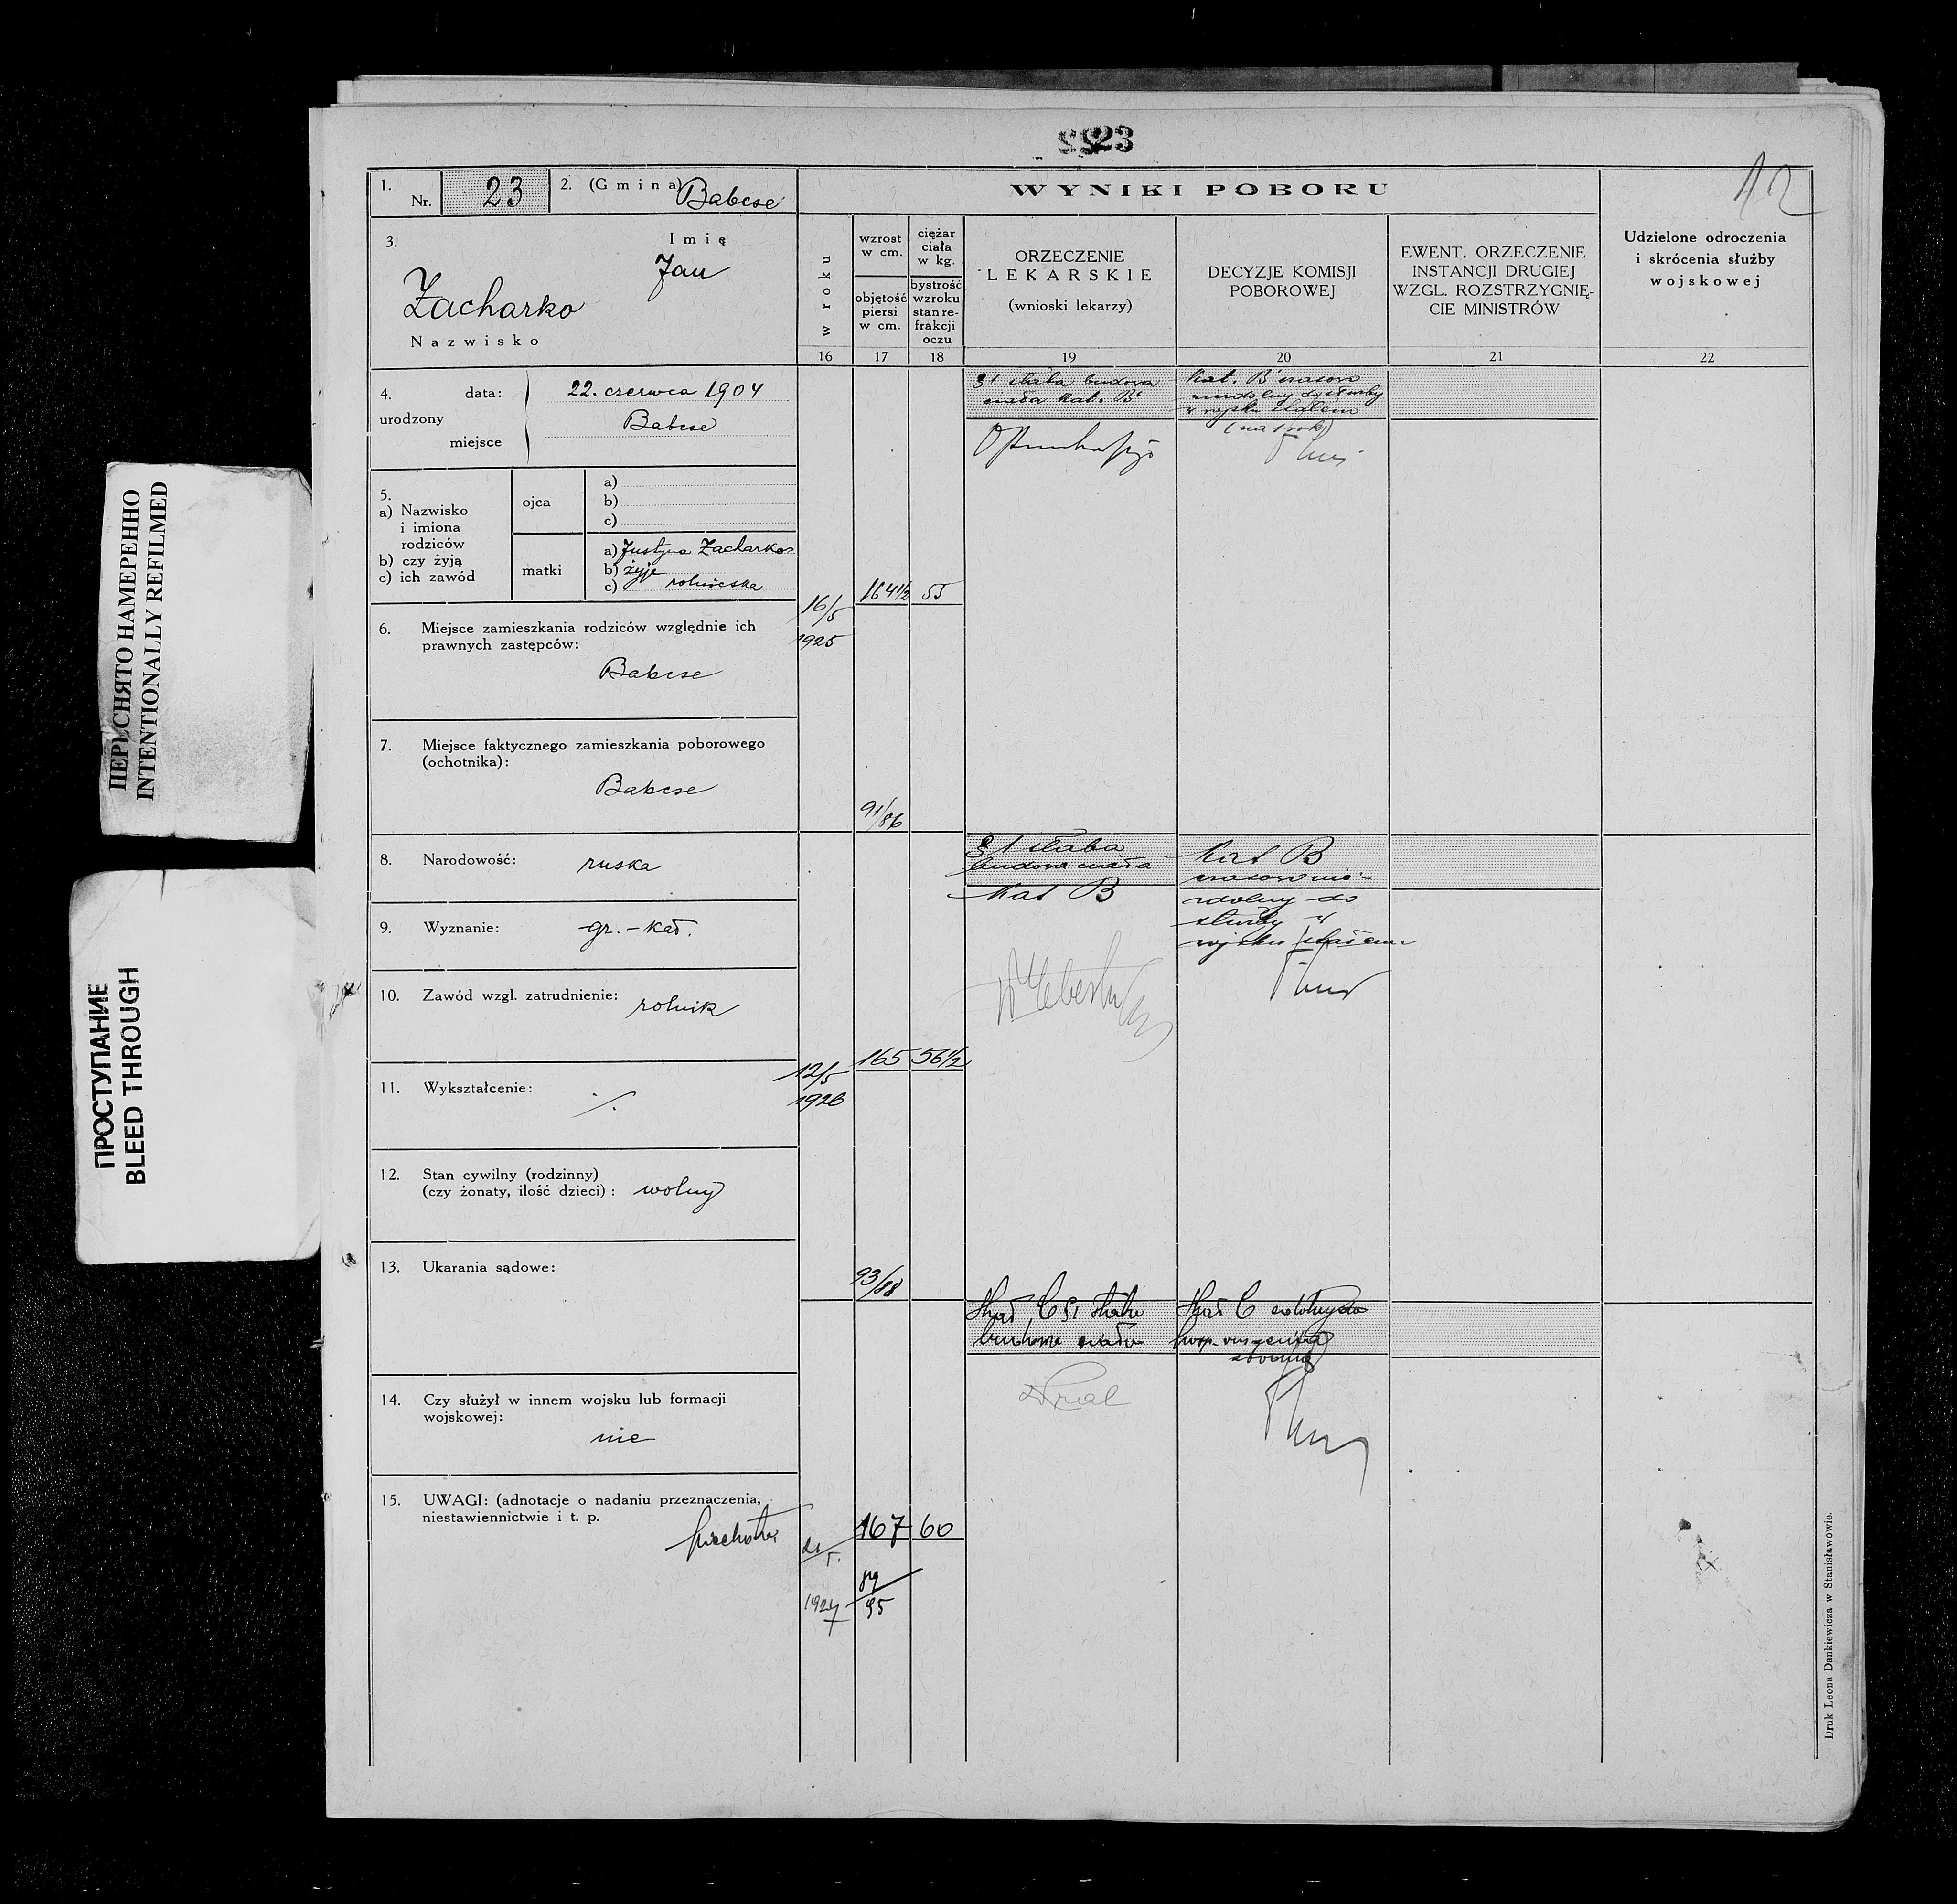 23
12
1. Nr. 23
2. (Gmina) Babcse
3. Imię
Jan
Zacharko
Nazwisko
4. urodzony
data: 22. czerwca 1904
miejsce Babcse
5.
a) Nazwisko i imiona rodziców
b) czy żyją
c) ich zawód
ojca
a)
b)
c)
matki
a) Justyna Zacharko
b) żyje
c) rolniczka
6. Miejsce zamieszkania rodziców względnie ich
prawnych zastępców:
Babcse
7. Miejsce faktycznego zamieszkania poborowego
(ochotnika):
Babcse
8. Narodowość: ruska
9. Wyznanie: gr.-kat.
10. Zawód wzgl. zatrudnienie: rolnik
11. Wykształcenie: ./.
12. Stan cywilny (rodzinny)
(czy żonaty, ilość dzieci): wolny
13. Ukarania sądowe:
14. Czy służył w innem wojsku lub formacji
wojskowej:
nie
15. UWAGI: (adnotacje o nadaniu przeznaczenia,
niestawiennictwie i t. p.
piechota
WYNIKI POBORU
w roku
16
wzrost
w cm.
objętość
piersi
w cm.
17
ciężar
ciała
w kg.
bystrość
wzroku
stan re-
frakcji
oczu
18
ORZECZENIE
LEKARSKIE
(wnioski lekarzy)
19
DECYZJE KOMISJI
POBOROWEJ
20
EWENT. ORZECZENIE
INSTANCJI DRUGIEJ
WZGL. ROZSTRZYGNIĘ-
CIE MINISTRÓW
21
Udzielone odroczenia
i skrócenia służby
wojskowej
22
16/5
1925
164 1/2 55
91/86
§1 słaba budowa
ciała kat. B
Kat. B czasowo
niezdolny do służby
w wojsku stałem
(na 1 rok)
12/5
1926
165 56 1/2
93/88
§1 słaba
budowa ciała
Kat B
Kat B
czasowo nie-
zdolny do
służby w
wojsku stałem
1927
167 60
89
95
Kat C §1 słaba
budowa ciała
Kat C zdolny do
posp. ruszenia
z bronią
Druk Leona Dankiewicza w Stanisławowie.
ПЕРЕСНЯТО НАМЕРЕННО
INTENTIONALLY REFILMED
ПРОСТУПАНИЕ
BLEED THROUGH